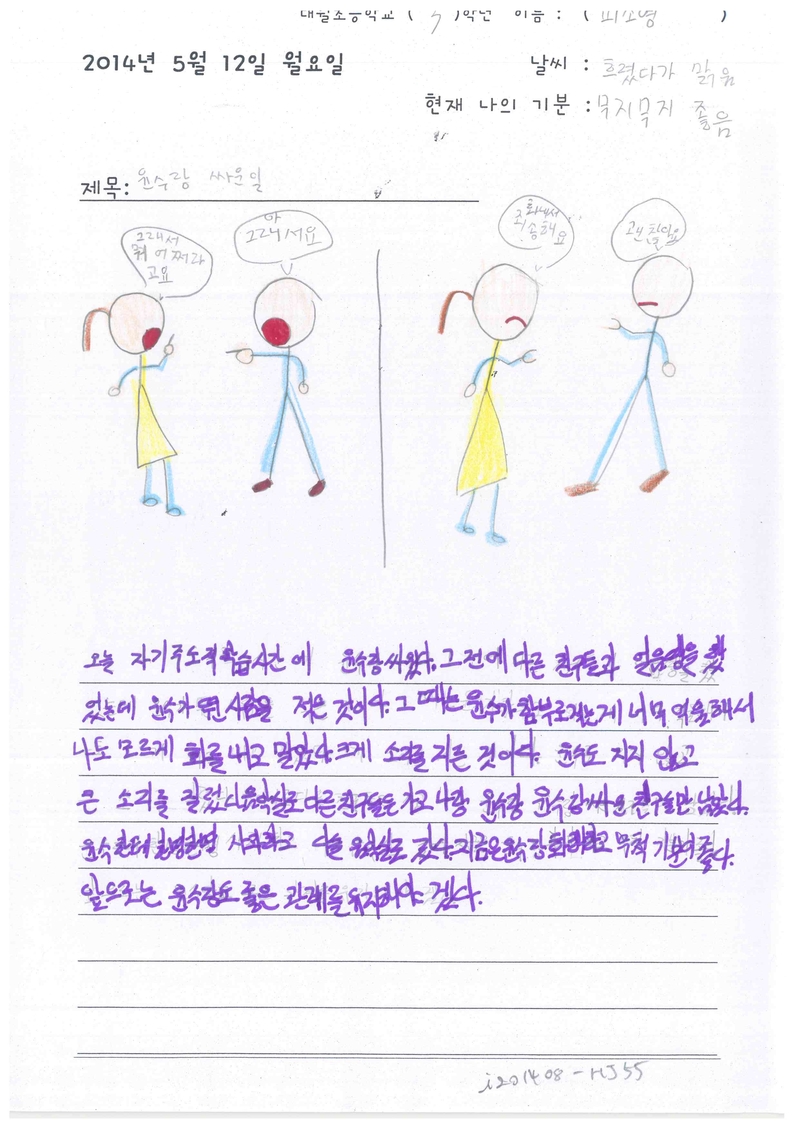 대월초등학교 ( 5 )학년 이름 : ( 피소영 )
2014년 5월 12일 월요일
날씨 : 흐렸다가 맑음
현재 나의 기분 : 무지무지 좋음
제목: 윤수랑 싸운일
그래서
뭐 어쩌라
고요
아
그래서요
화내서
죄송해요
괜찮아요
오늘 자기주도적 학습시간에 윤수랑 싸웠다. 그전에 다른 친구들과
있는데 윤수가 적은 것이다. 그때는 윤수가 함부로 너무 억울해서
나도 모르게 화를 내고 말았다. 크게 소리를 지른 것이다. 윤수도 지지 않고
큰 소리를 질렀다. 음악실로 다른 친구들은 가고 나랑 윤수랑 윤수랑 싸운 친구들만 남았다.
윤수한테 한명한명 사과하고 음악실로 갔다. 지금은 윤수랑 화해하고 무척 기분이 좋다.
앞으로는 윤수랑도 좋은 관계를 유지해야 겠다.
i201408-HJ55